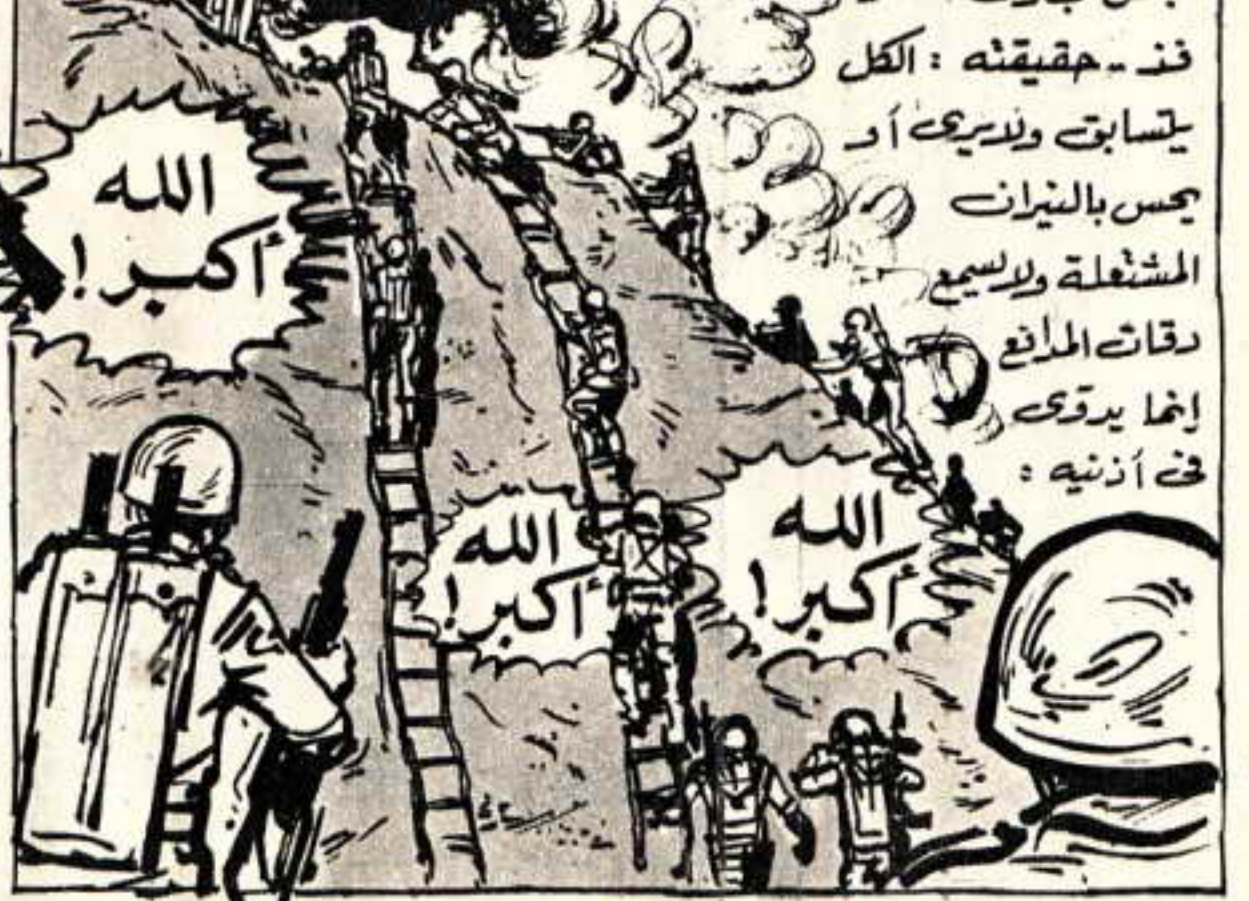 فذ .. حقيقته : الكل
يتسابق ولا يرى أو
يحس بالنيران
المشتعلة ولا يسمع
دقات المدافع
إنما يدوى
فى أذنيه :
الله
أكبر !
الله
أكبر !
الله
أكبر !